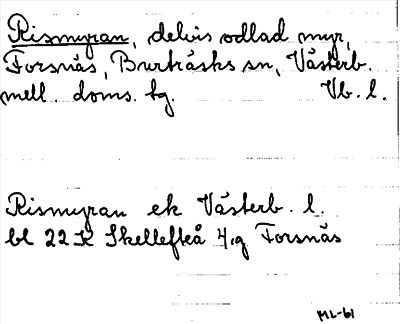 Rismyran, delvis odlad myr,
Forsnäs, Burträsks sn, Västerb.
mell. doms. tg. Vb. l.
Rismyran ek Västerb. l.
bl 22 K Skellefteå 4,g Forsnäs
ML-61